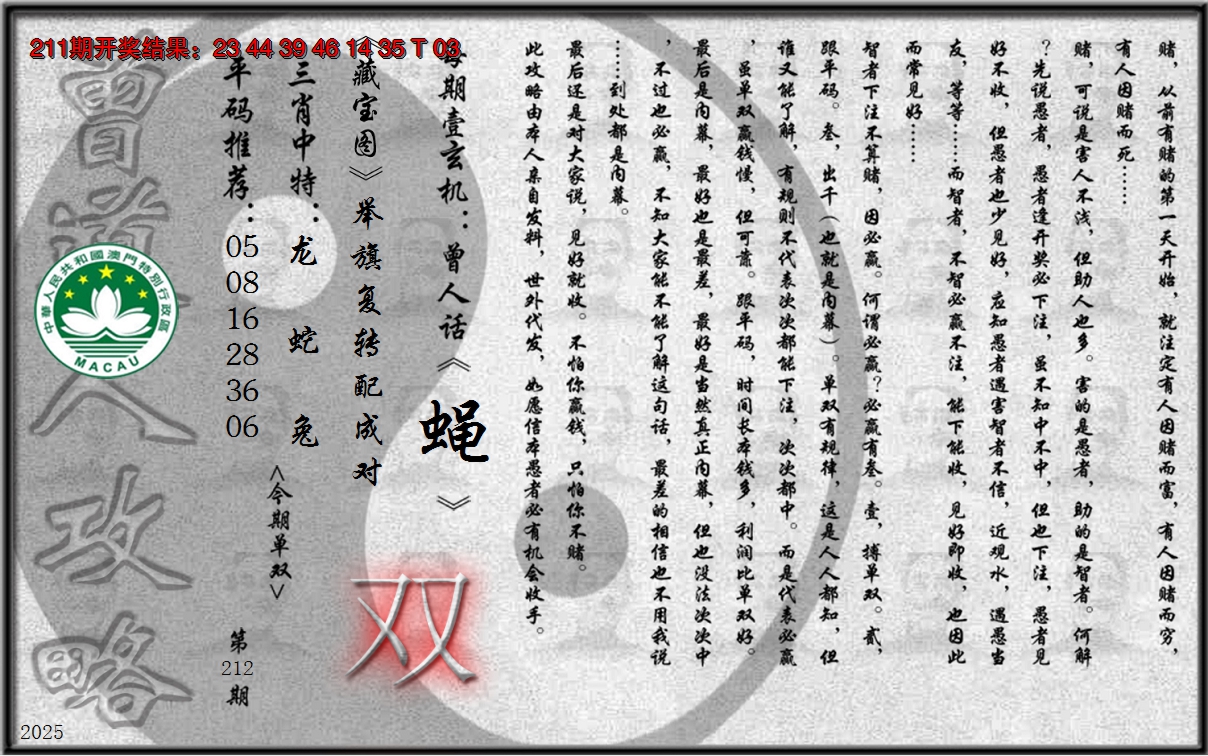 211期开奖结果：23 44 39 46 14 35 T 03
赌，从前有赌的第一天开始，就注定有人因赌而富，有人因赌而穷，
有人因赌而死……
赌，可说是害人不浅，但助人也多。害的是愚者，助的是智者。何解
？先说愚者，愚者逢开奖必下注，虽不知中不中，但也下注，愚者见
好不收，但愚者也少见好，应知愚者遇害智者不信，近观水，遇愚当
友，等等……而智者，不智必赢不注，能下能收，见好即收，也因此
而常见好……
智者下注不算赌，因必赢。何谓必赢？必赢有叁。壹，搏单双。贰，
跟平码。叁，出千（也就是内幕）。单双有规律，这是人人都知，但
谁又能了解，有规则不代表次次都能下注，次次都中。而是代表必赢
，虽单双赢钱慢，但可靠。跟平码，时间长本钱多，利润比单双好。
最后是内幕，最好也是最差，最好是当然真正内幕，但也没法次次中
，不过也必赢，不知大家能不能了解这句话，最差的相信也不用我说
……到处都是内幕。
最后还是对大家说，见好就收。不怕你赢钱，只怕你不赌。
此攻略由本人亲自发料，世外代发，如愿信本愚者必有机会收手。
每期壹玄机：曾人话《蝇》
《藏宝图》举旗复转配成对
双
三肖中特：龙 蛇 兔
<今期单双>
平码推荐：05 08 16 28 36 06
第212期
曾道人攻略
中華人民共和國澳門特別行政區
MACAU
2025